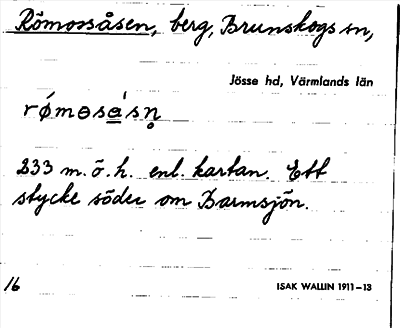 Römossåsen, berg, Brunskogs sn,
Jösse hd, Värmlands län
rǿməsa̲'sn̥
233 m. ö. h. enl. kartan. Ett
stycke söder om Barmsjön.
16
ISAK WALLIN 1911–13